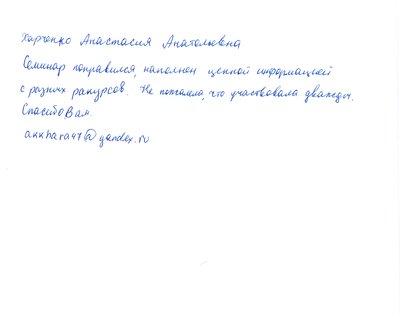 Харченко Анастасия Анатольевна
Семинар понравился, наполнен ценной информацией
с разных ракурсов. Не пожалела, что участвовала дважды.
Спасибо Вам.
akkhara47@yandex.ru